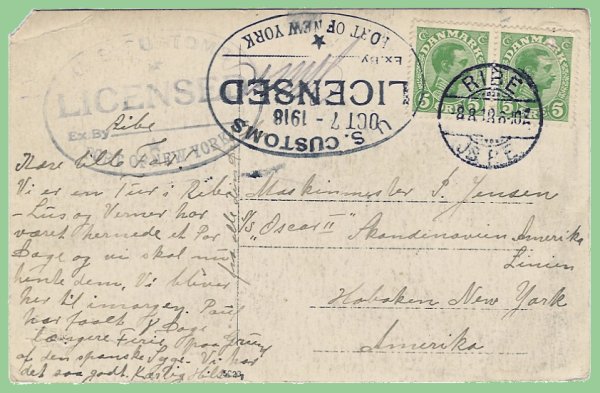 U. S. CUSTOMS
PORT OF NEW YORK
Ex. By
LICENSED
OCT 7 - 1918
U. S. CUSTOMS
LICENSED
Ex. By
PORT OF NEW YORK
DANMARK
5
5
DANMARK
5
5
RIBE
8.8.18.6
JB.P.E.
Ribe
Kære lille
Vi er en Tur i Ribe
- Lius og Verner har
været hernede et Par
Dage og vi skal nu
hente dem. Vi bliver
her til imorgen. Paul
har faaet 14 Dage
længere Ferie paa Grund
af den spanske Syge. Vi har
det saa godt. Kærlig Hilsen
fra alle
Maskinmester P. Jensen
S/S "Oscar II" Skandinavien Amerika
Linien
Hoboken New York
Amerika